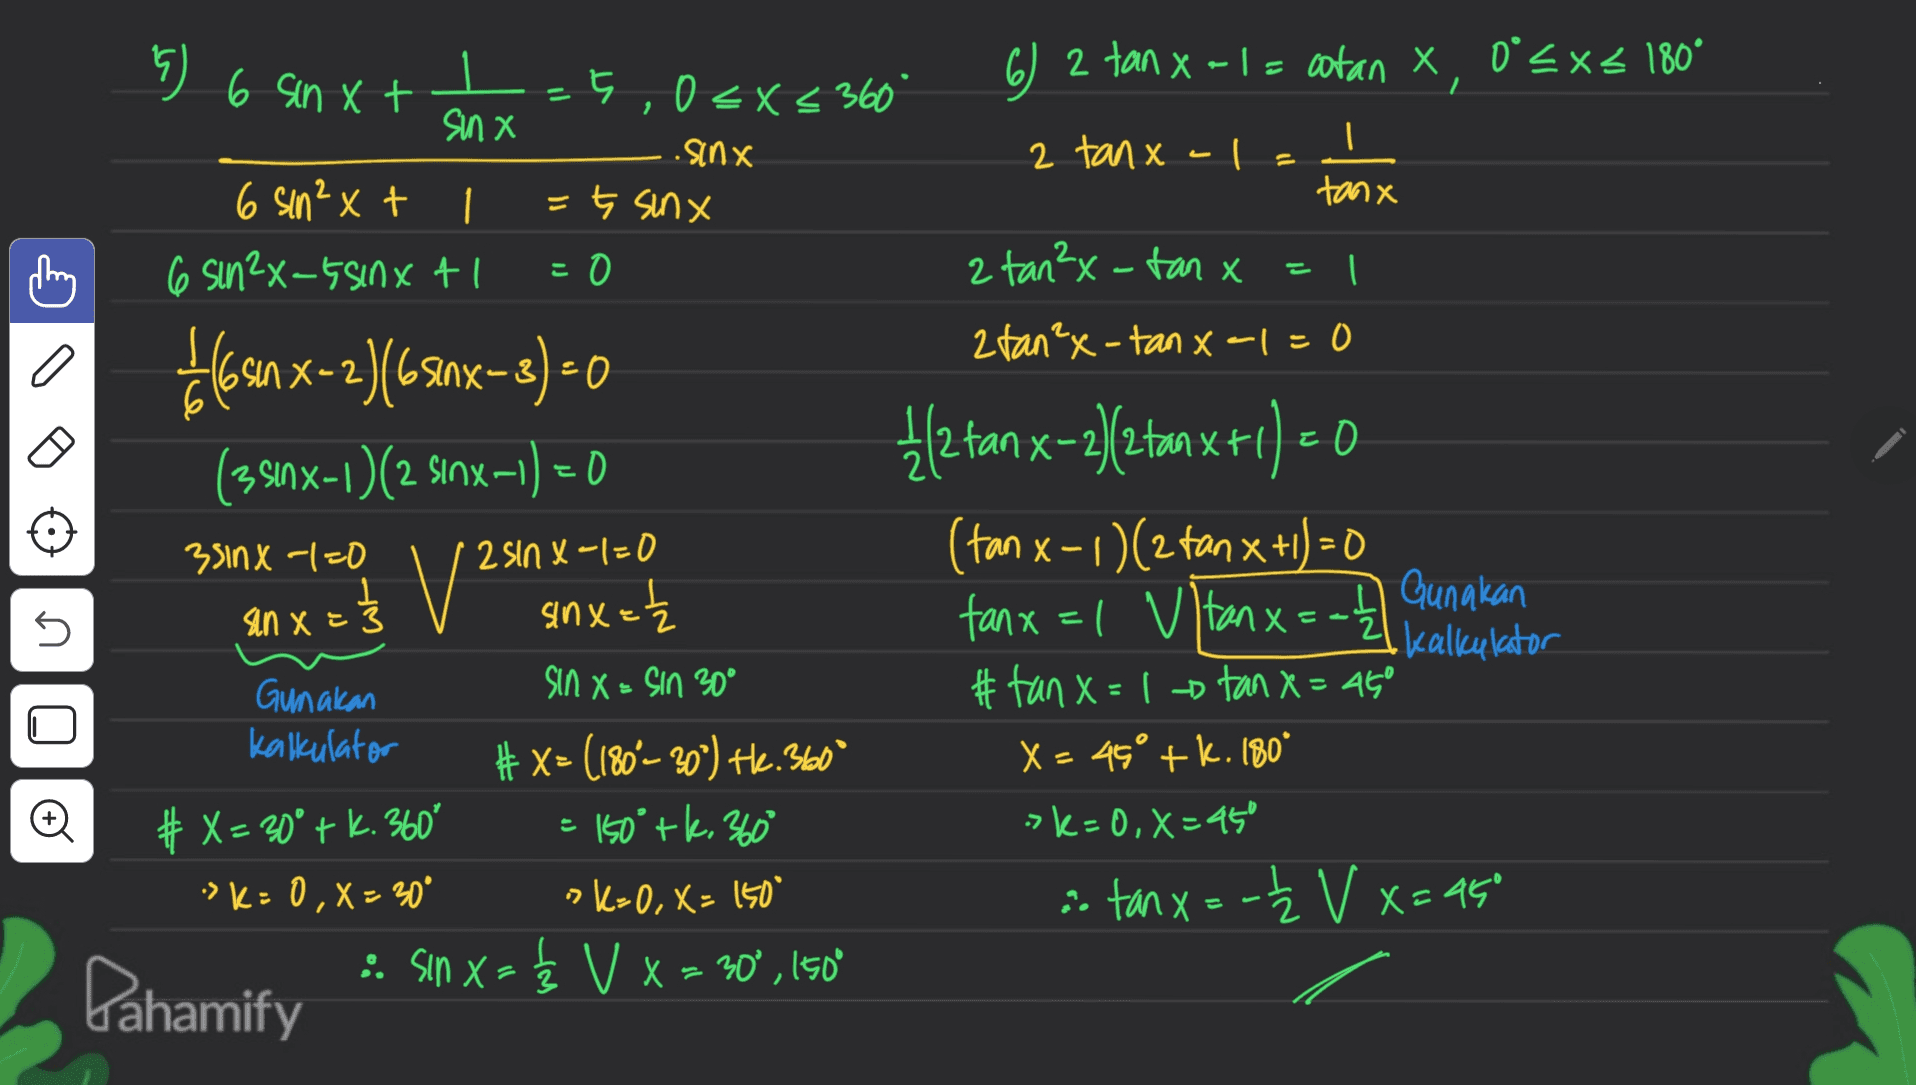 5) 6 sin x + 1/sin x = 5 , 0 ≤ x ≤ 360°
. sin x
6 sin² x + 1 = 5 sin x
6 sin² x - 5 sin x + 1 = 0
1/6 (6 sin x - 2)(6 sin x - 3) = 0
(3 sin x - 1)(2 sin x - 1) = 0
3 sin x - 1 = 0 V 2 sin x - 1 = 0
sin x = 1/3 sin x = 1/2
Gunakan kalkulator
sin x = sin 30°
# x = (180° - 30°) + k. 360°
# x = 30° + k. 360° = 150° + k. 360°
> k = 0, x = 30° > k = 0, x = 150°
∴ sin x = 1/3 V x = 30°, 150°
6) 2 tan x - 1 = cotan x, 0° ≤ x ≤ 180°
2 tan x - 1 = 1/tan x
2 tan² x - tan x = 1
2 tan² x - tan x - 1 = 0
1/2 (2 tan x - 2)(2 tan x + 1) = 0
(tan x - 1)(2 tan x + 1) = 0
tan x = 1 V tan x = - 1/2 Gunakan kalkulator
# tan x = 1 → tan x = 45°
x = 45° + k. 180°
> k = 0, x = 45°
∴ tan x = - 1/2 V x = 45°
Pahamify